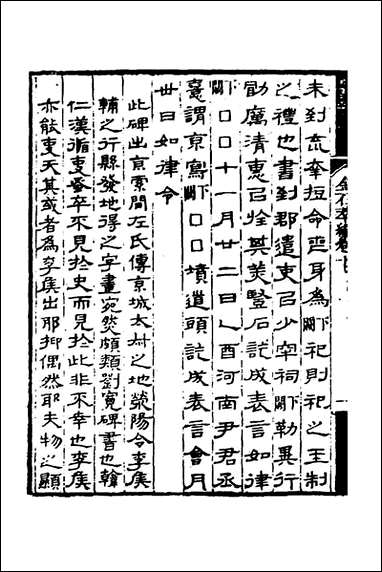 金石萃編卷十
未到不幸短命喪身為下闕祀則祀之王制
之禮也書到郡遣吏以少牢祠下闕勒異行
勖厲清惠以旌其美豎石訖成表言如律
下闕□□十一月廿二日乙酉河南尹君丞
憙謂京寫下闕□□墳道頭訖成表言會月
卅日如律令
此碑出京索閒左氏傳京城太叔之地滎陽令李侯
輔之行縣發地得之字畫宛然頗類劉寬碑書也韓
仁漢循吏蚤卒不見於史而見於此非不幸也李侯
亦能吏天其或者為李侯出耶抑偶然耶夫物之顯